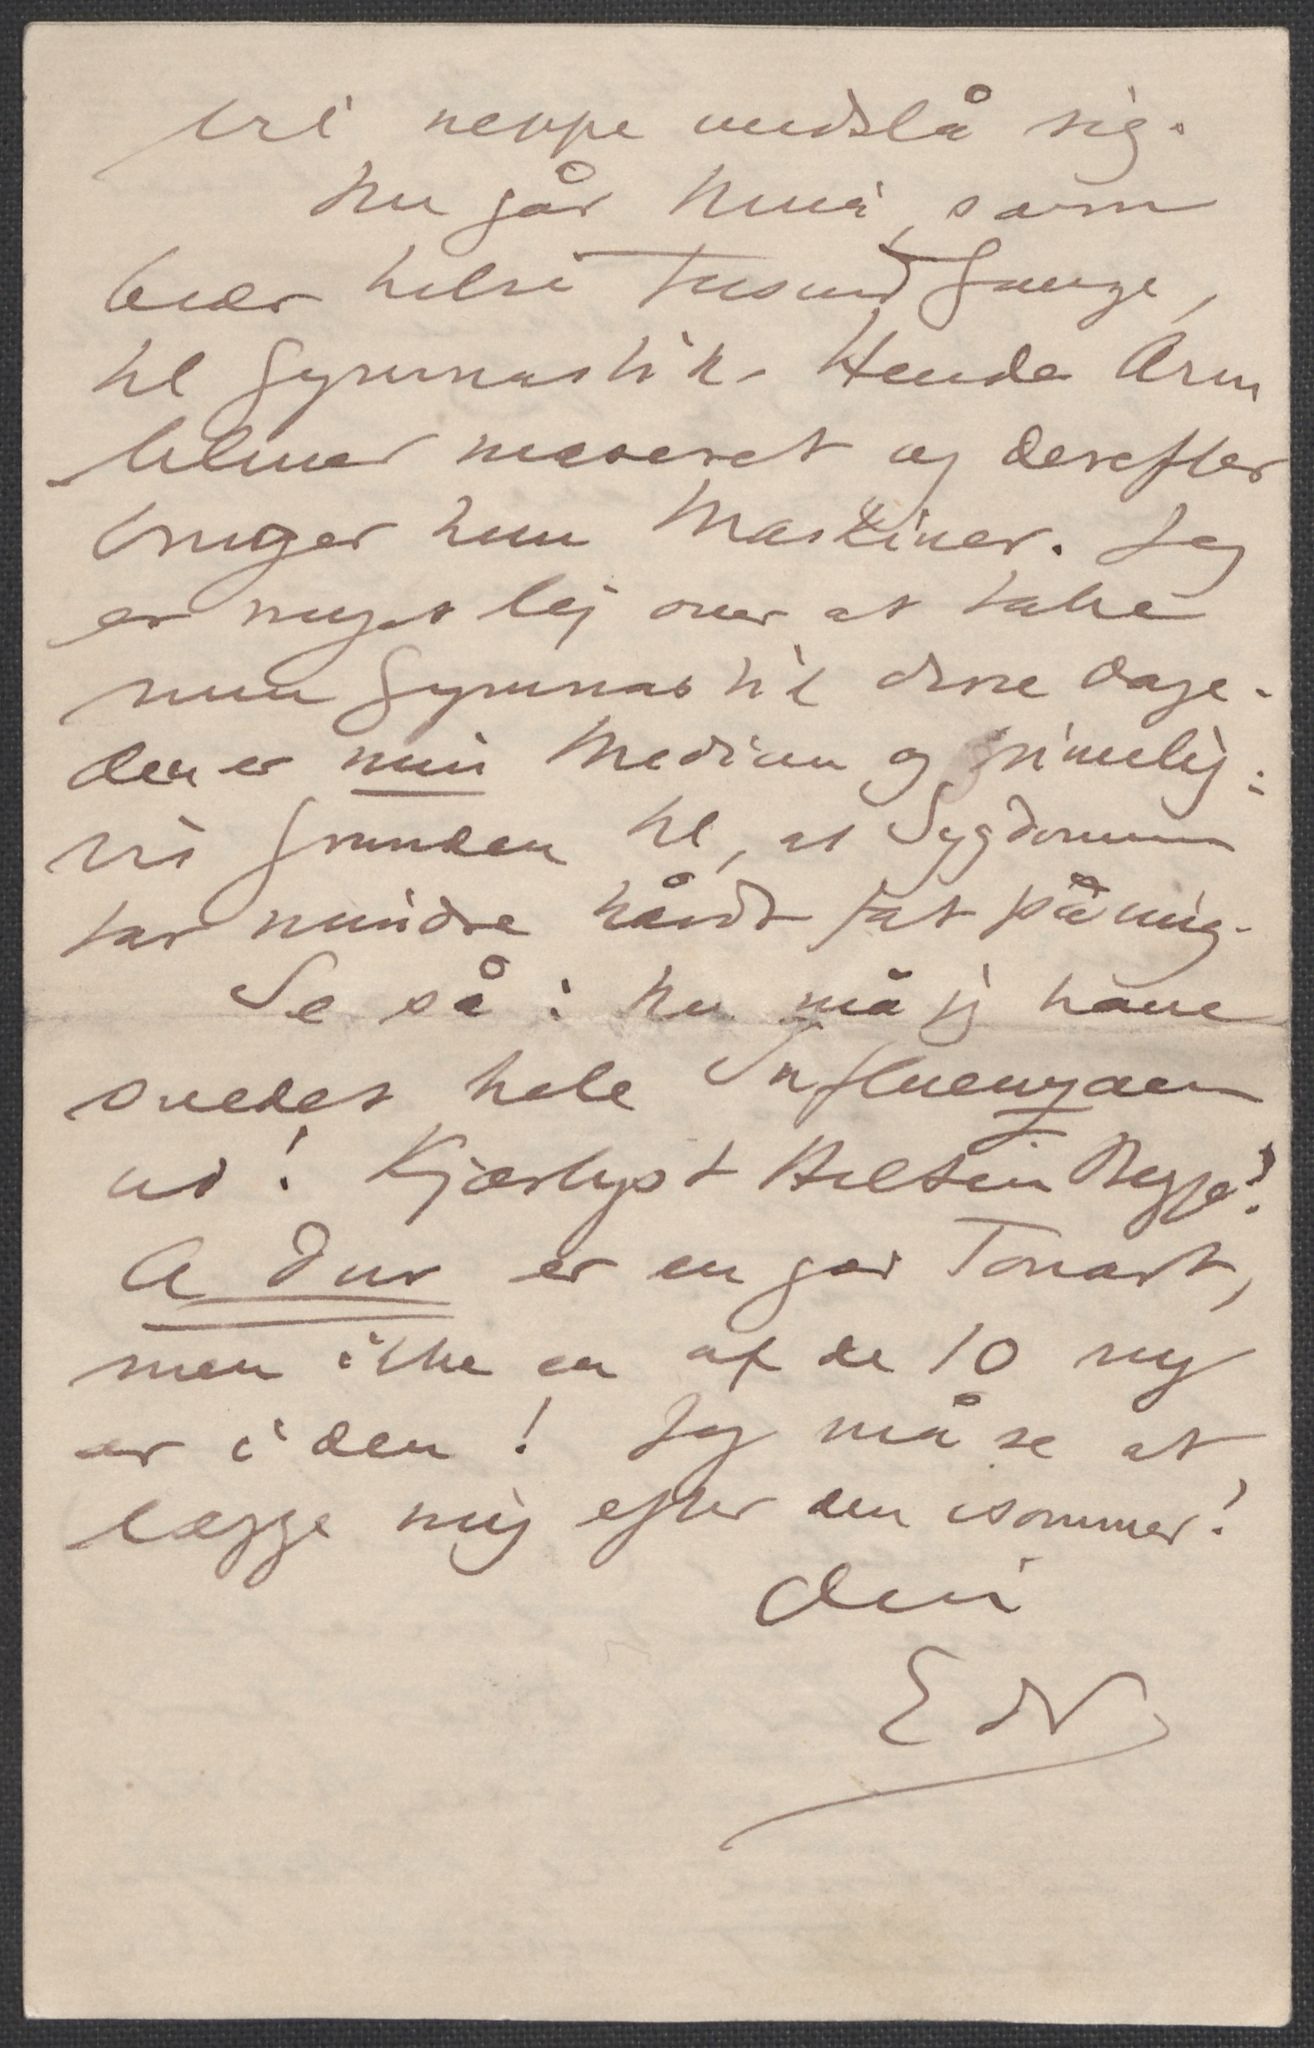 vil neppe undslå sig.
Nu går Nina, som
beder hilse Tusind Gange,
til Gymnastik. Hendes Arm
bliver maseret og derefter
bruger hun Maskiner. Jeg
er meget lej over at tabe
min Gymnastik disse Dage.
Den er min Medicin og rimelig:
vis Grunden til, at Sygdommen
tar mindre hårdt fat på mig.
Se så: nu må jeg have
svedet hele Influenzaen
ud! Kjærligst Hilsen Begge!
A Dur er en god Tonart,
men ikke en af de 10 ny
er i den! Jeg må se at
lægge mig efter den isommer!
Din
E